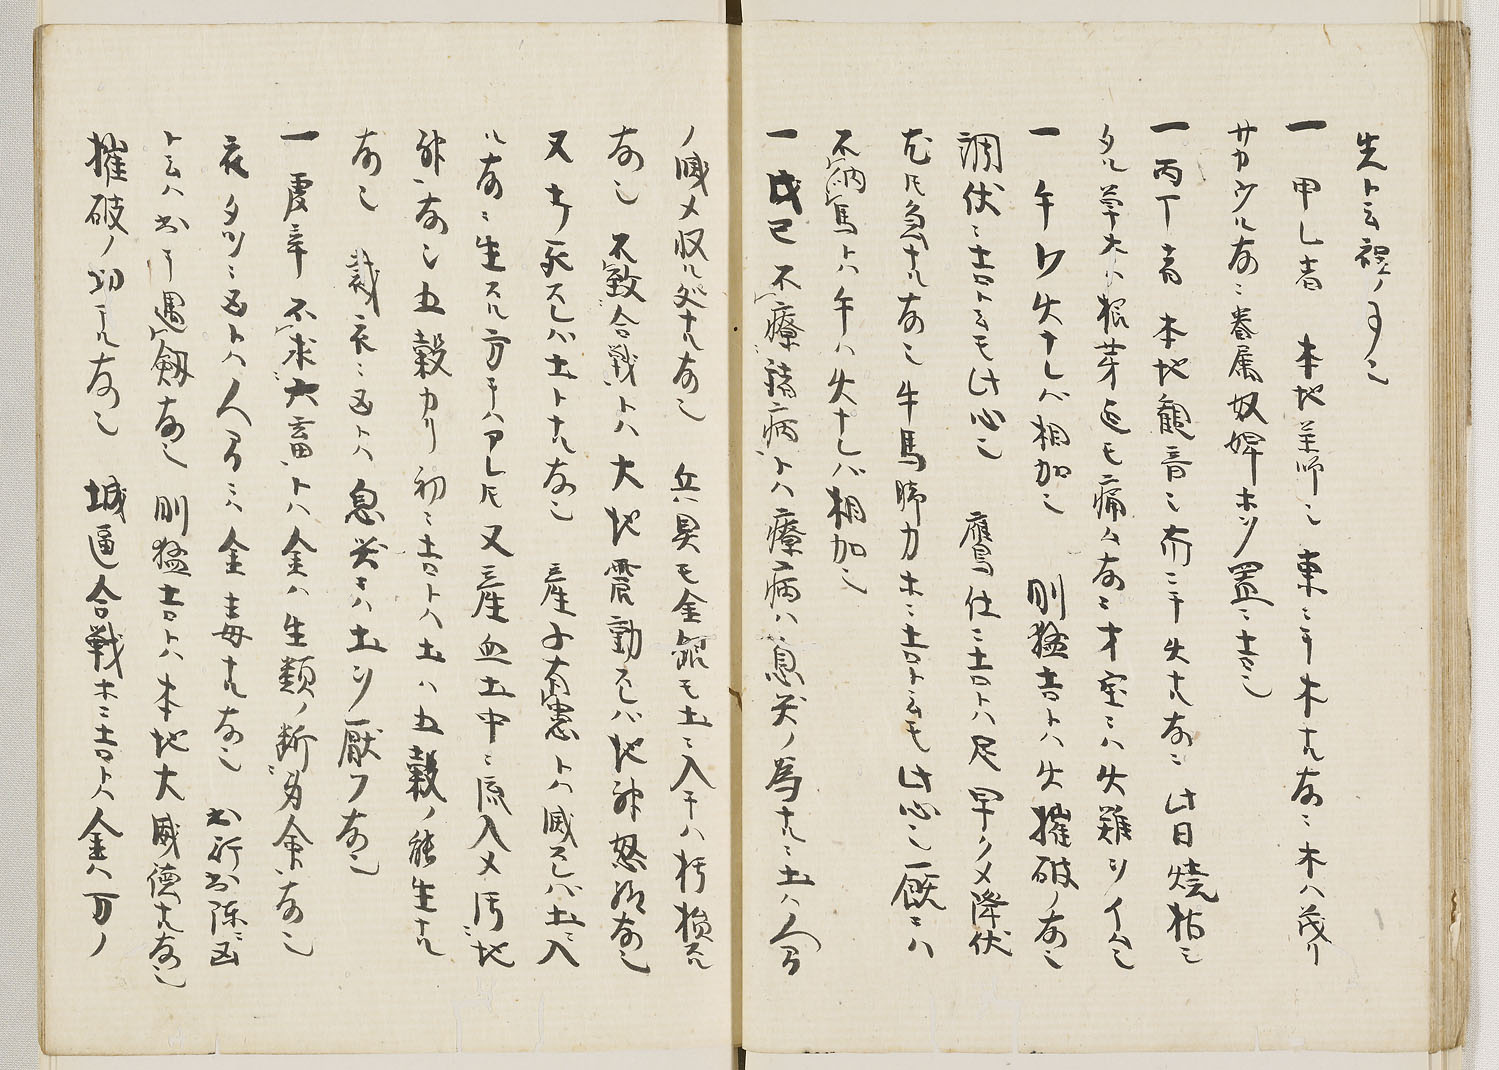 先ト云祝ノ事也
一 甲乙者 本地薬師也東ニテ木ナル故ニ木ハ茂リ
サカウル故ニ眷属奴婢ホシ置ニ吉也
一 丙丁者 本地観音也南ニテ火ナル故ニ此日焼枯シ
タル草木ハ根芽迄モ痛ム故ニ才宝ニハ火難ヲイム也
一 午ノ日火ナレバ相加也 剛猛吉トハ火摧破ノ故也
調伏ニ吉ト云モ此心也 鷹仕ニ吉トハ是早クメ降伏
尤凡急ナル故也牛馬肺力ホニ吉ト云モ此心也厩ニハ
不納馬トハ午ハ火ナレバ相加也
一 戊己 不療諸病トハ療病ハ息災ノ為ナルニ土ハ人間
ノ滅メ収ル処ナル故也 兵具モ金銀モ土ニ入テハ朽損スル
故也 不致合戦トハ大地震動スレバ地神怒給故也
又ナ死スレバ土トナル故也 産子有憲トハ滅スレバ土ニ入
ル故ニ生スル方テハアレ凡又産血土中ニ流入メ汚地
神故也五穀カリ初ニ吉トハ土ハ五穀ノ能生ナル
故也 裁衣ニ凶トハ息災ハ土ヲ厭フ故也
一 庚辛 不求六畜トハ金ハ生類ノ断命故也
衣タツニ凶トハ人間ニハ金毒ナル故也 出行出陣ニ凶
ト云ハ出テ遇劔故也 剛猛吉トハ本地大威徳ナル故也
摧破ノ功ナル故也 城逼合戦ホニ吉トハ金ハ万ノ